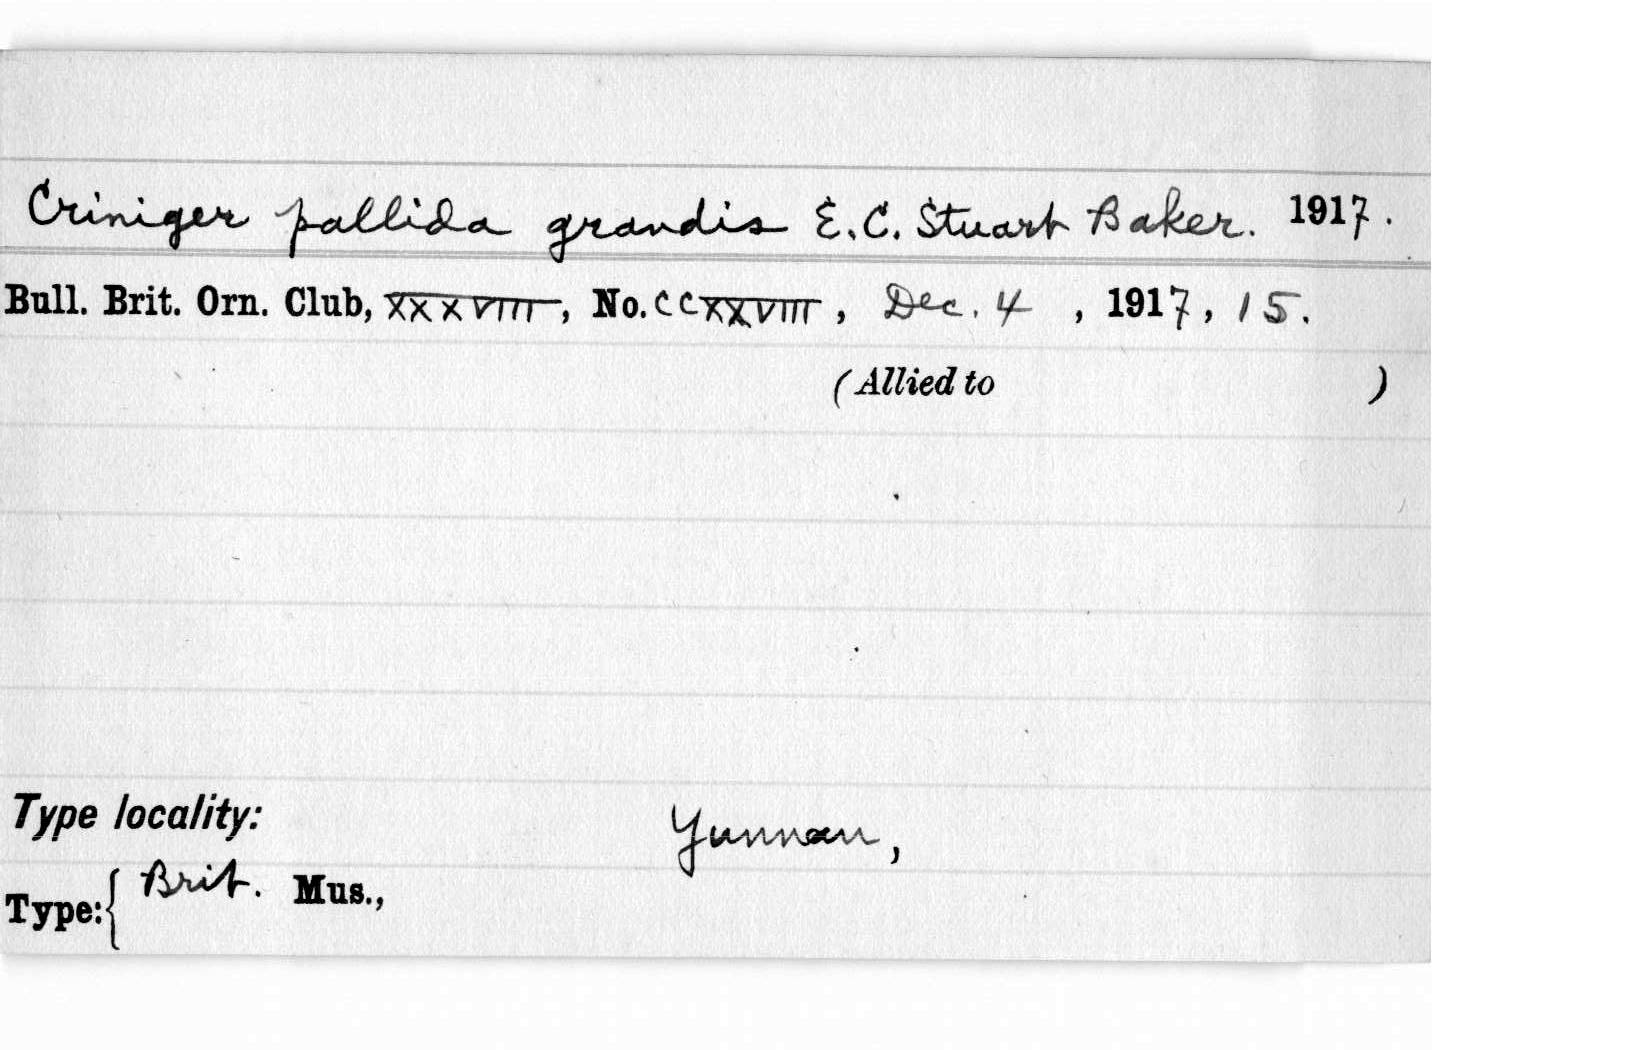 Criniger pallida grandis E.C. Stuart Baker. 1917.
Bull. Brit. Orn. Club, XXXVIII, No. CCXXVIII, Dec. 4, 1917, 15.
(Allied to )
Type locality: Yunnan,
Type: { Brit. Mus.,